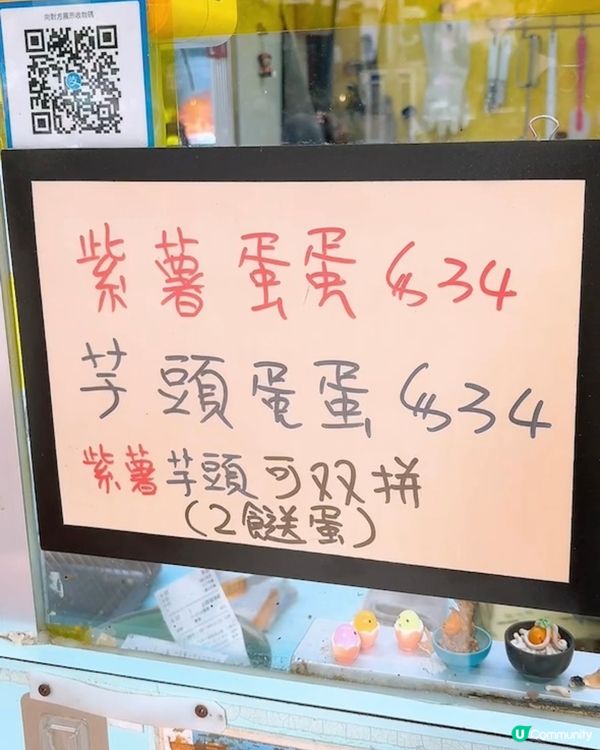 向對方展示收款碼
紫薯蛋蛋 $34
芋頭蛋蛋 $34
紫薯芋頭可双拼
(2餸送蛋)
U Community